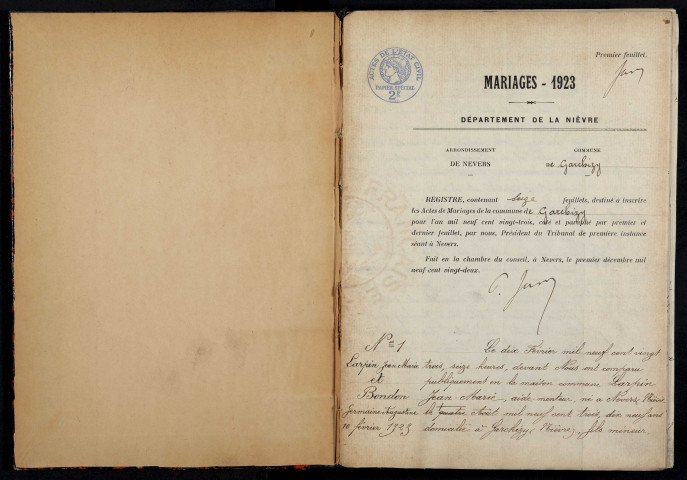 Premier feuillet.
ACTES DE L'ÉTAT CIVIL
PAPIER SPÉCIAL
2F
MARIAGES - 1923
DÉPARTEMENT DE LA NIÈVRE
ARRONDISSEMENT
DE NEVERS
COMMUNE
DE Garchizy
REGISTRE, contenant seize feuillets, destiné à inscrire
les Actes de Mariages de la commune de Garchizy
pour l'an mil neuf cent vingt-trois, coté et paraphé par premier et
dernier feuillet, par nous, Président du Tribunal de première instance
séant à Nevers.
Fait en la chambre du conseil, à Nevers, le premier décembre mil
neuf cent vingt-deux.
No 1
Larpin Jean Marie
et
Bondon
Germaine Augustine
10 février 1923
Le dix Février mil neuf cent vingt
trois, seize heures, devant Nous ont comparu
publiquement en la maison commune Larpin
Jean Marie, aide monteur, né à Nevers, Nièvre,
le quatre Août mil neuf cent trois, dix neuf ans
domicilié à Garchizy (Nièvre), fils mineur